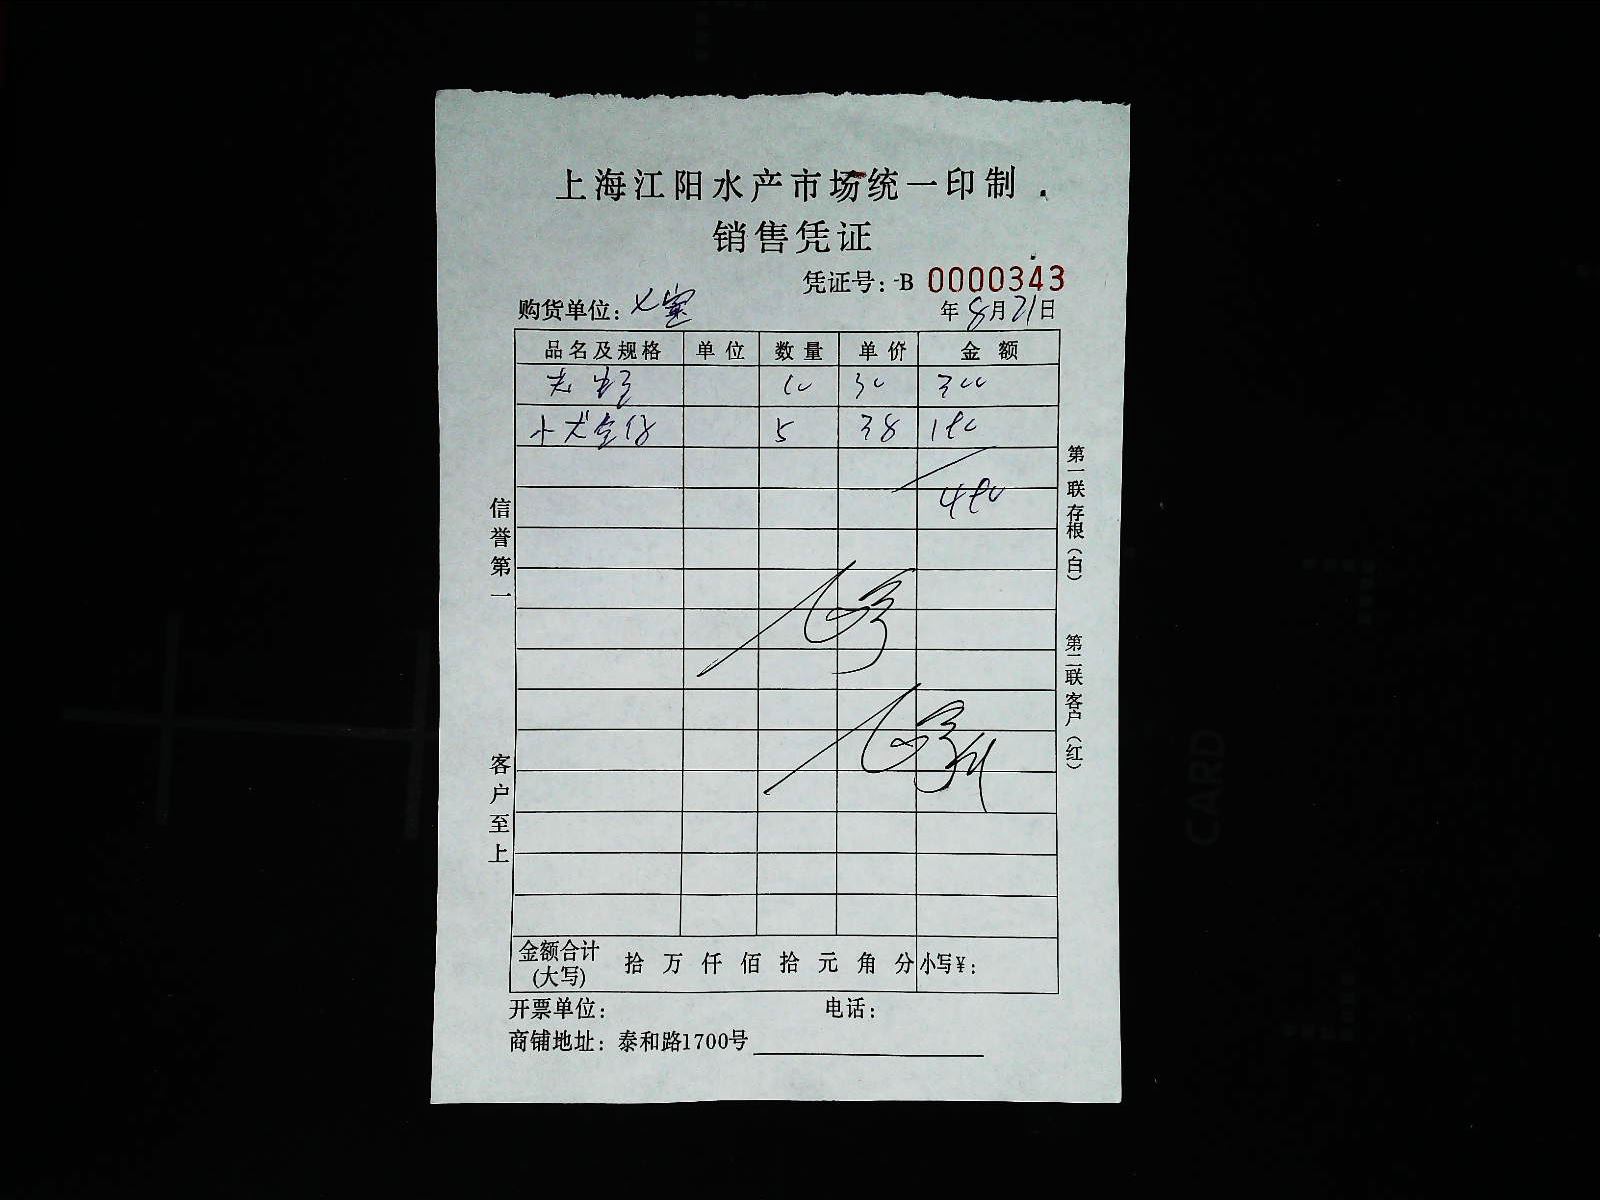 上海江阳水产市场统一印制
销售凭证
凭证号：-B 0000343
购货单位：七宝
年 8月21日
品名及规格 单位 数量 单价 金额
10 30 300
5 38 190
490
信誉第一
客户至上
第一联 存根（白）
第二联 客户（红）
金额合计（大写） 拾 万 仟 佰 拾 元 角 分 小写¥：
开票单位： 电话：
商铺地址：泰和路1700号
CARD